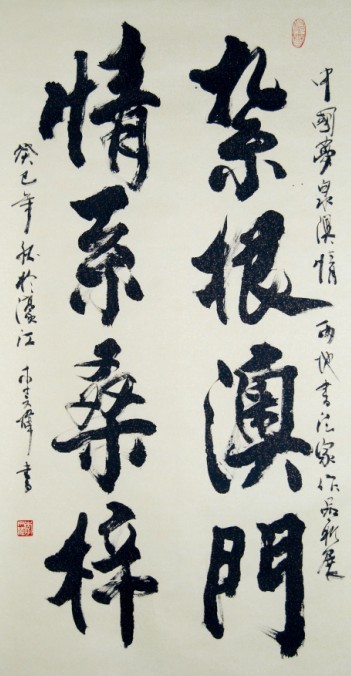 中國夢泉澳情 两地書法家作品聯展
紮根澳門
情系桑梓
癸巳年秋於濠江 書